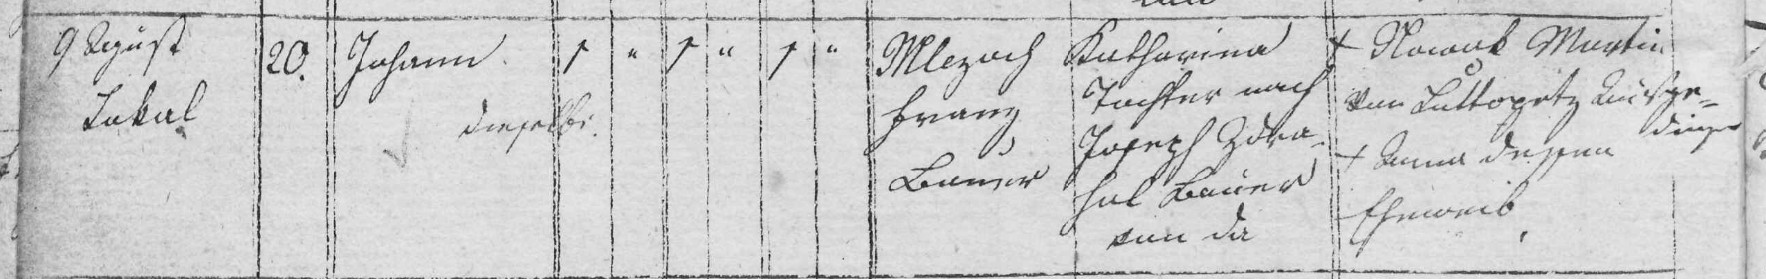 9 August
Lokal
20.
Johann
dieselbe.
1 " 1 " 1 "
Mlezoch
Franz
Bauer
Katharina
Tochter nach
Joseph Zdra-
hal Bauer
von da
+ Nowak Martin
von Luttopetz Ausge-
dinger
+ Anna dessen
Eheweib